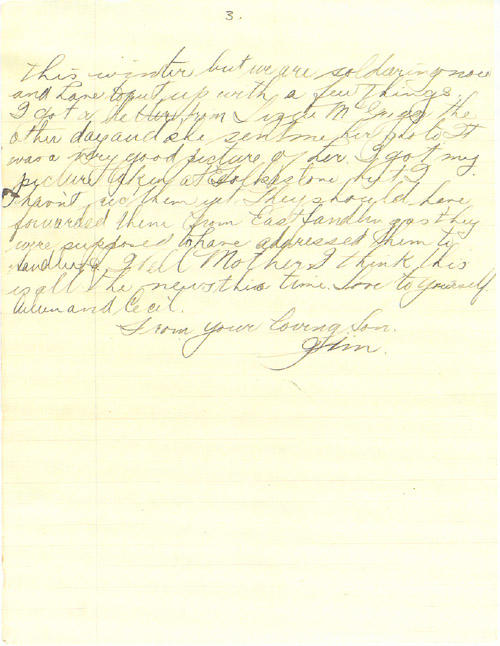 3.
this winter but we are soldiering now
and have to put up with a few things.
I got a letter from Lizzie the
other day and she sent me her photo It
was a very good picture of her. I got my
picture taken at Folkestone but I
havnt rec them yet They should have
forwarded them from East Sandling as they
were supposed to have addressed them to
Sandling. Well Mother I think this
is all the news this time. Love to yourself
and Cecil.
From your loving Son.
Jim.